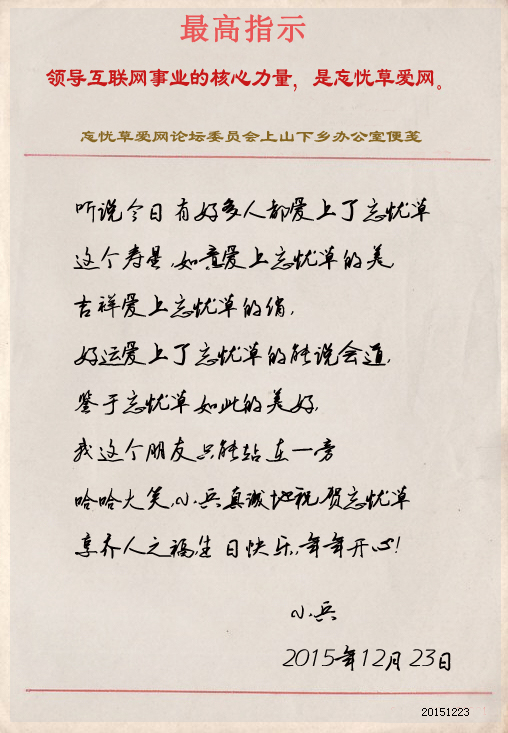 最高指示
领导互联网事业的核心力量，是忘忧草爱网。
忘忧草爱网论坛委员会上山下乡办公室便笺
听说今日有好多人都爱上了忘忧草
这个寿星，如意爱上忘忧草的美
吉祥爱上忘忧草的俏，
好运爱上了忘忧草的能说会道，
鉴于忘忧草如此的美好，
我这个朋友只能站在一旁
哈哈大笑，小兵真诚地祝贺忘忧草
享齐人之福，生日快乐，年年开心！
小兵
2015年12月23日
20151223